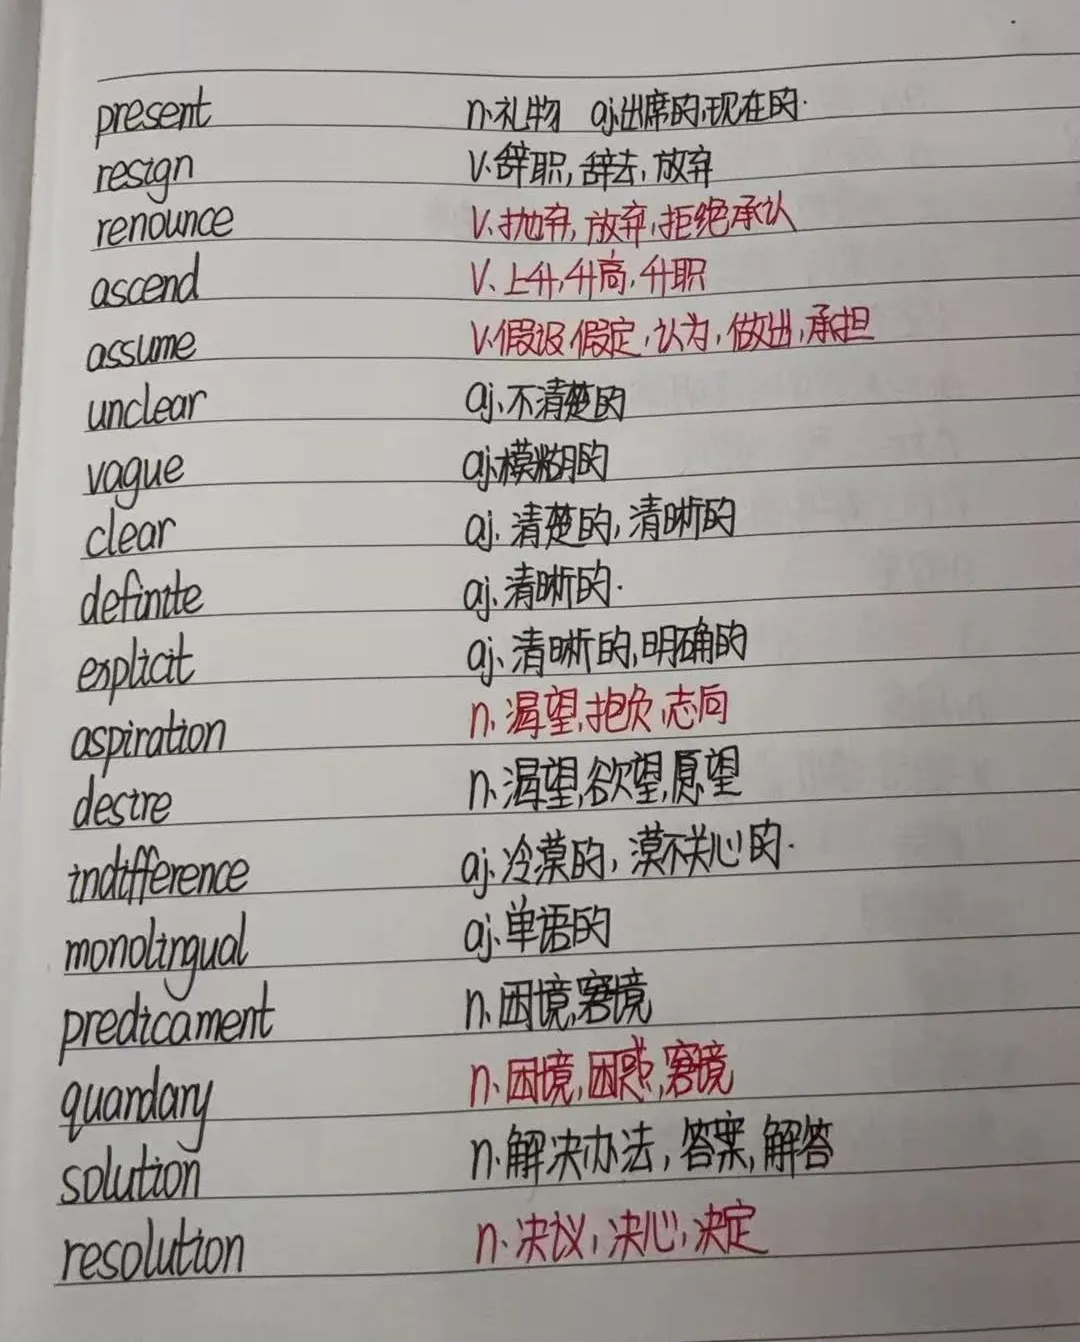 present n.礼物 aj.出席的,现在的.
resign v.辞职,辞去,放弃
renounce v.抛弃,放弃,拒绝承认
ascend v.上升,升高,升职
assume v.假设 假定,认为,做出,承担
unclear aj.不清楚的
vague aj.模糊的
clear aj.清楚的,清晰的
definite aj.清晰的.
explicit aj.清晰的,明确的
aspiration n.渴望,抱负,志向
desire n.渴望,欲望,愿望
indifference aj.冷漠的,漠不关心的.
monolingual aj.单语的
predicament n.困境,窘境
quandary n.困境,困惑,窘境
solution n.解决办法,答案,解答
resolution n.决议,决心,决定